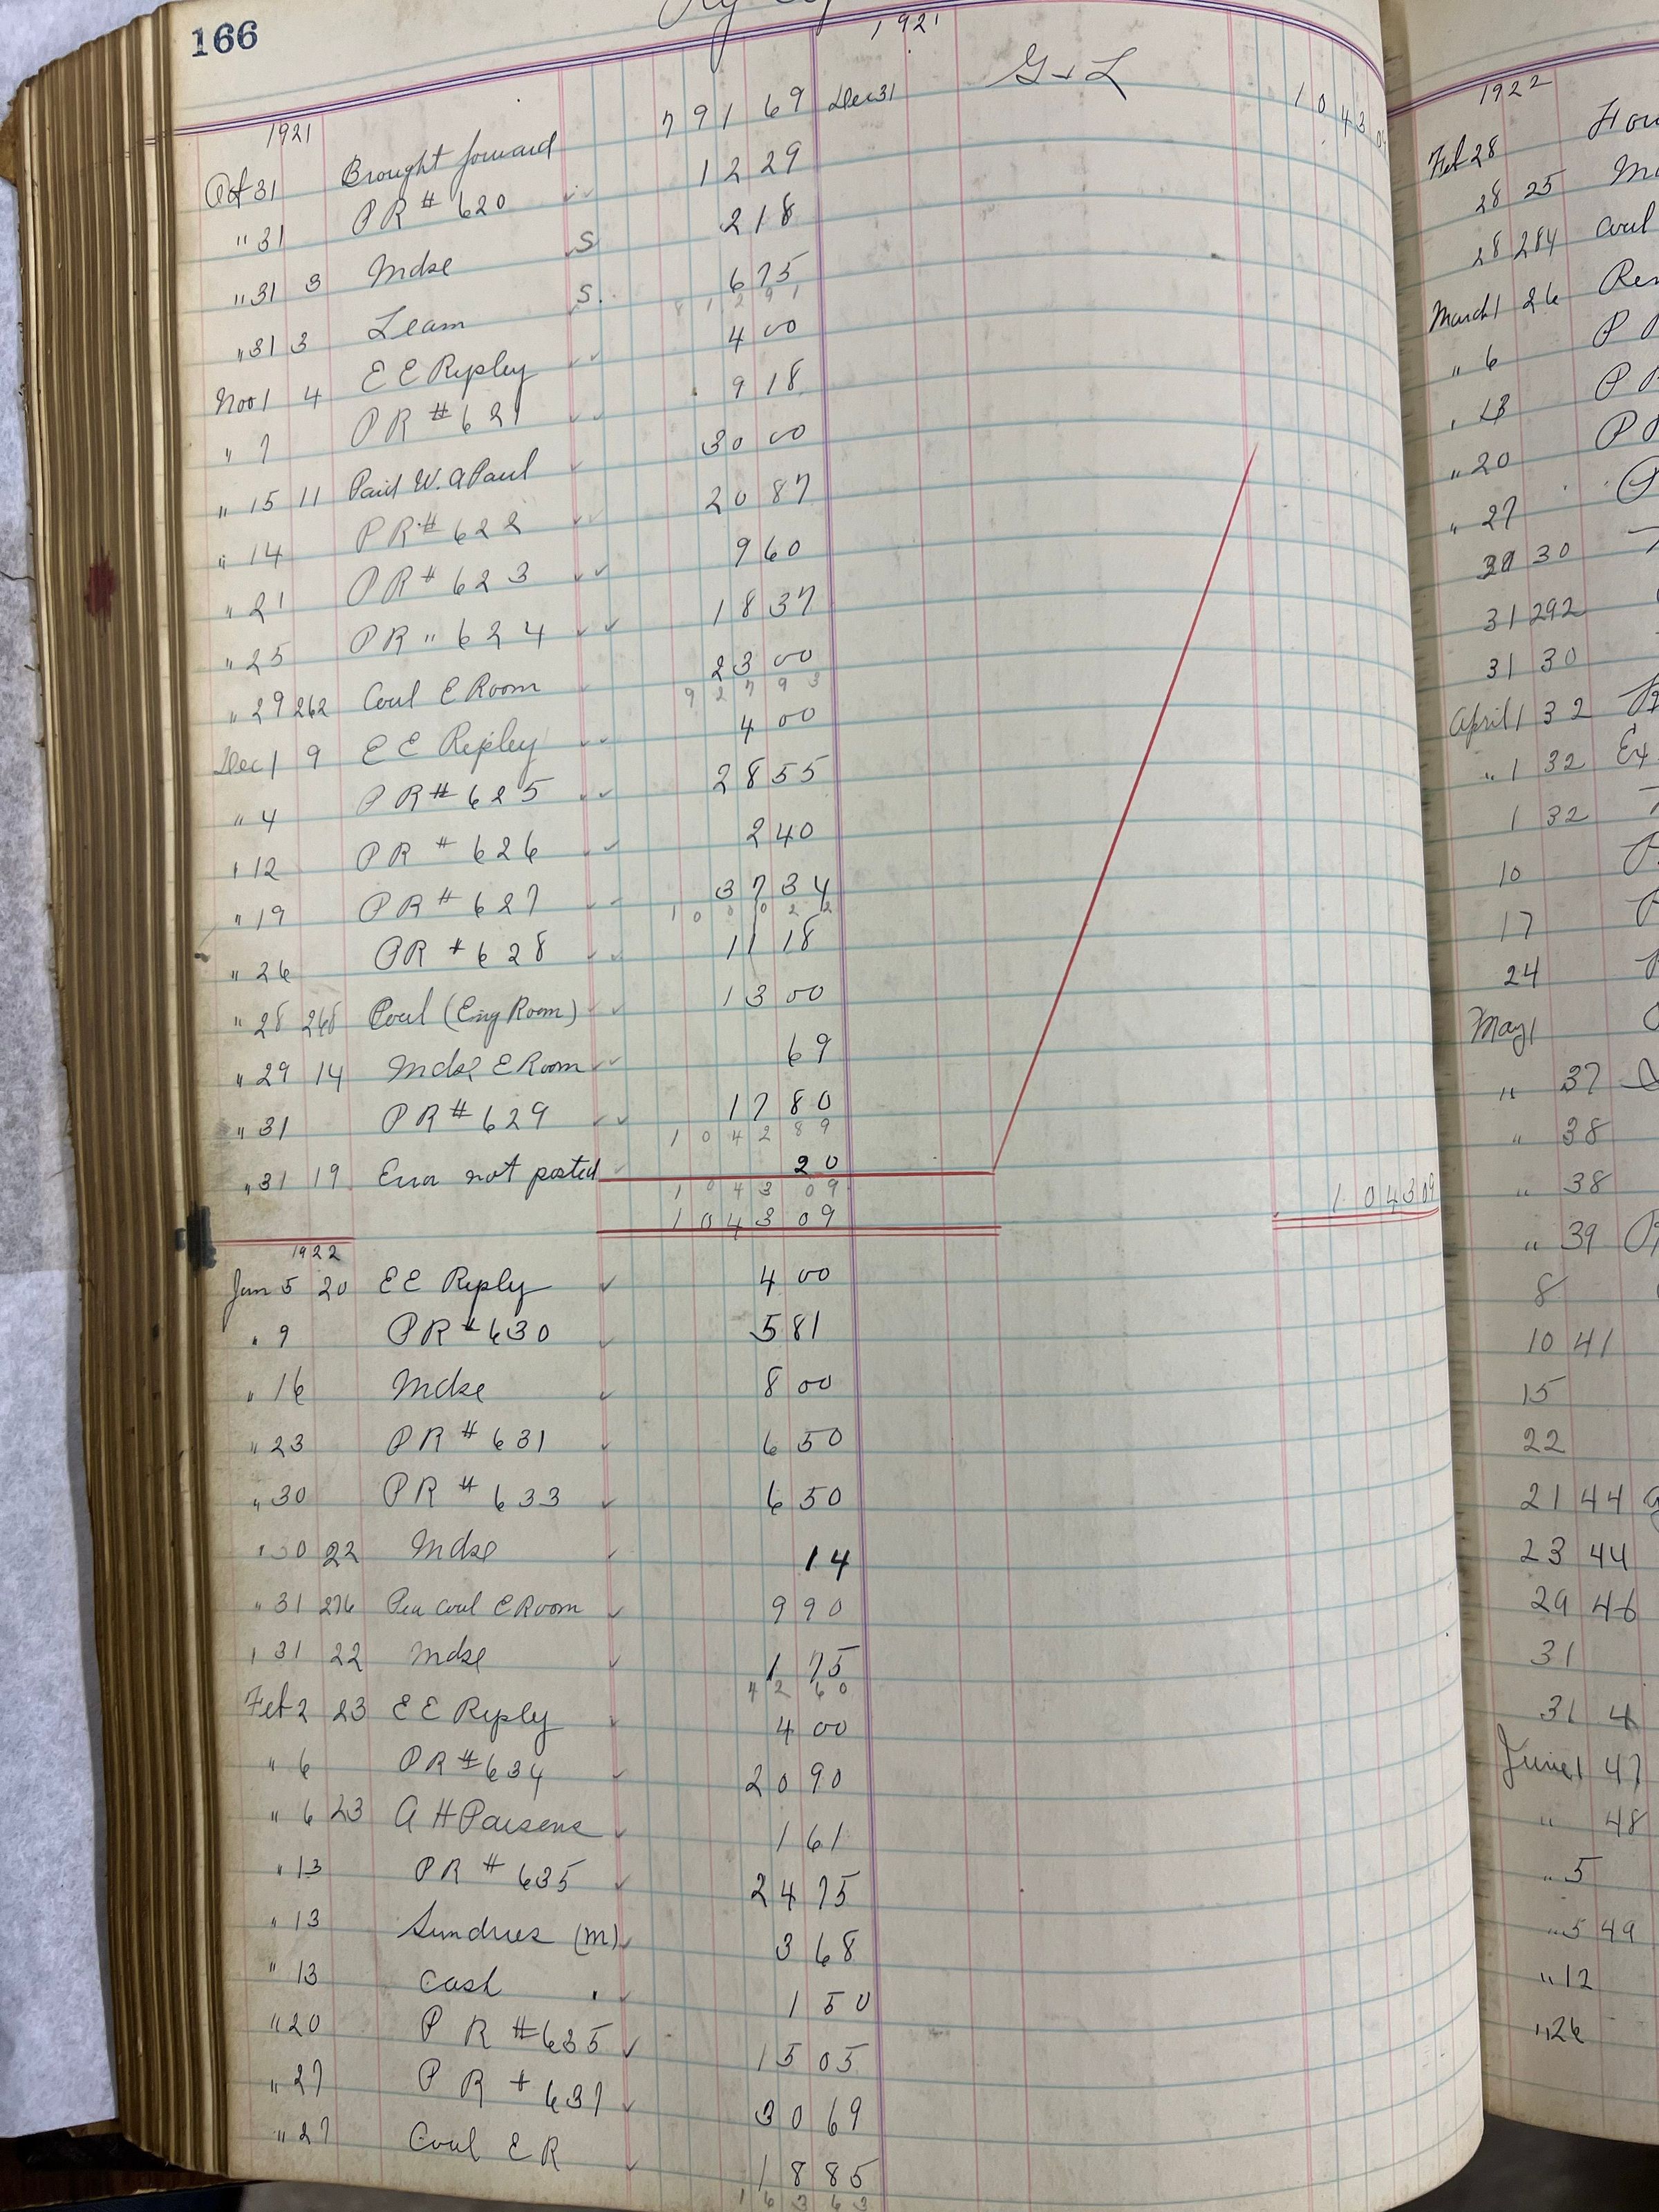 166
1921
1921 Dec 31 G & L 1043 09
Oct 31 Brought forward 791 69
" 31 PR # 620 12 29
" 31 3 Mdse S 2 18
" 31 3 Team S. 6 75
812 91
Nov 1 4 E E Ripley 4 00
" 7 PR # 621 9 18
" 15 11 Paid W. A Paul 30 00
" 14 PR # 622 20 87
" 21 PR # 623 9 60
" 25 PR " 624 18 37
" 29 262 Coal E Room 23 00
927 93
Dec 1 9 E E Ripley 4 00
" 4 PR # 625 28 55
" 12 PR # 626 2 40
" 19 PR # 627 37 34
1000 22
" 26 PR # 628 11 18
" 28 268 Coal (Eng Room) 13 00
" 29 14 Mdse E Room 69
" 31 PR # 629 17 80
1042 89
" 31 19 Error not posted 20
1043 09
1043 09 1043 09
1922
Jan 5 20 E E Reply 4 00
" 9 PR # 630 5 81
" 16 Mdse 8 00
" 23 PR # 631 6 50
" 30 PR # 633 6 50
" 30 22 Mdse 14
" 31 276 Pea Coal E Room 9 90
" 31 22 Mdse 1 75
42 60
Feb 2 23 E E Reply 4 00
" 6 PR # 634 20 90
" 6 23 A H Parsons 1 61
" 13 PR # 635 24 75
" 13 Sundries (M) 3 68
" 13 Cash " 1 50
" 20 PR # 635 15 05
" 27 PR # 637 30 69
" 27 Coal E R 18 85
163 63
1922
Feb 28
28 25
28 284 Coal
March 1 26
" 6 P
" 13 P
" 20 P
" 27
30 30
31 292
31 30
April 1 32
" 1 32 Ex
1 32
10
17
24
May 1
" 37
" 38
" 38
" 39
8
10 41
15
22
21 44
23 44
29 46
31
31 4
June 1 47
" 48
" 5
" 5 49
" 12
" 26